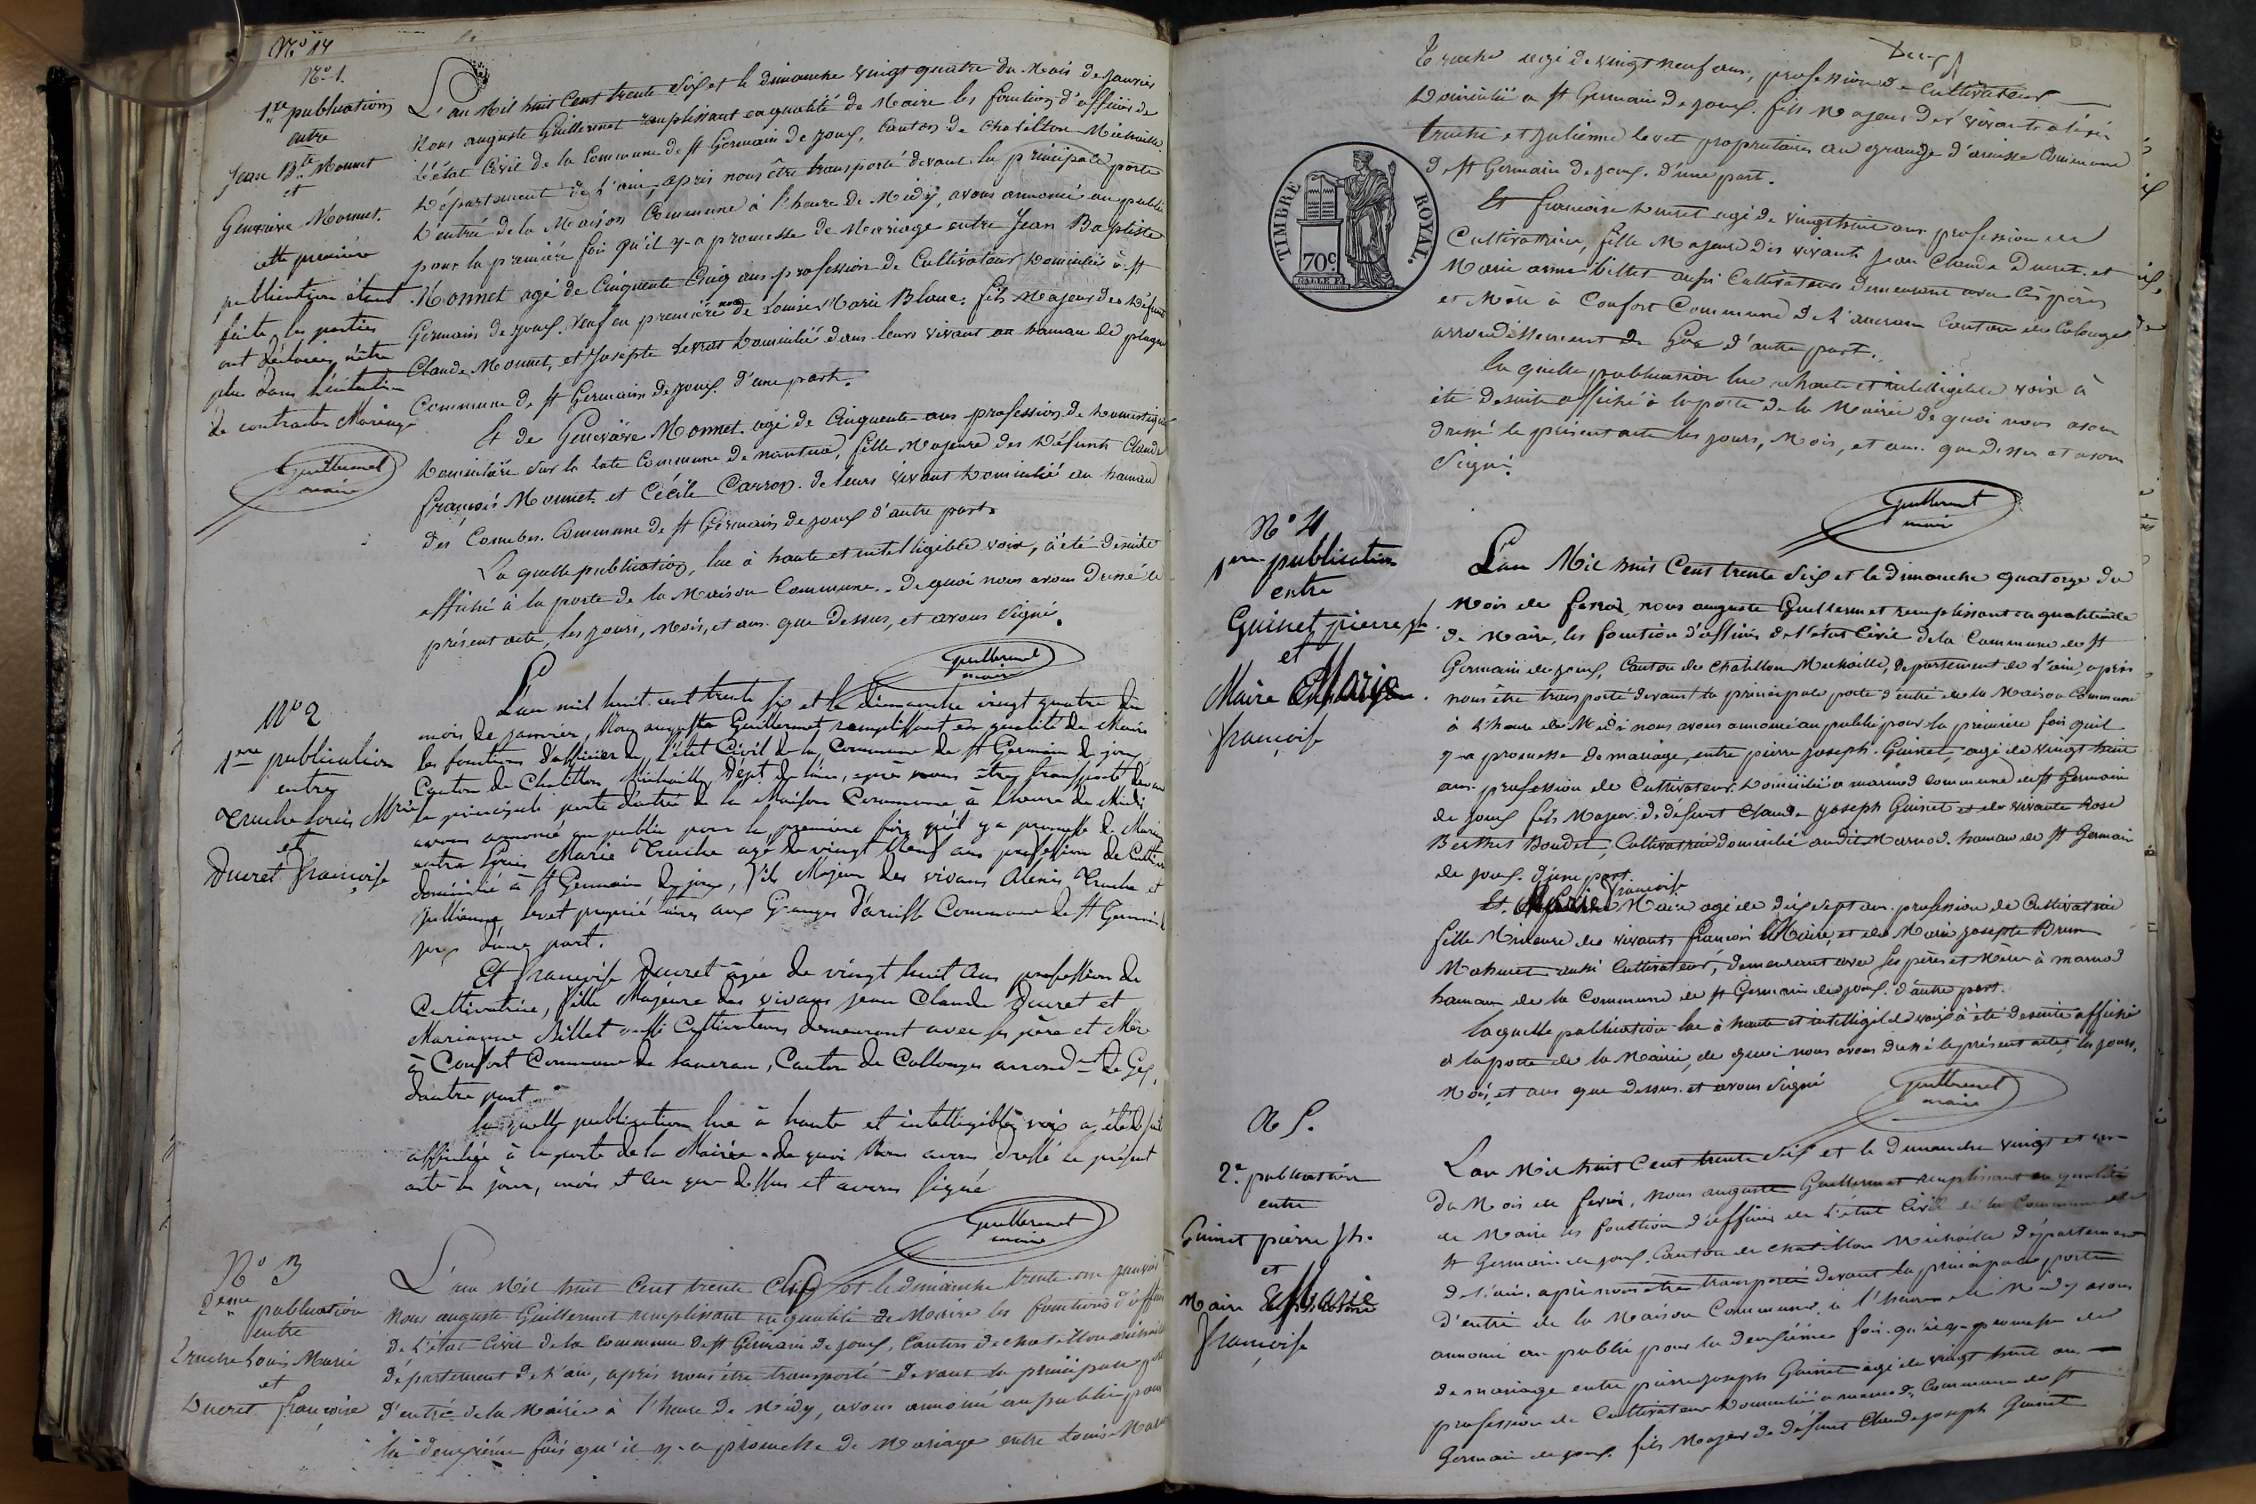 N° 14
N° 1.
1re publication
entre
Jean Bte Monnet
et
Genevieve Monnet.
cette première
publication étant
faite les parties
ont déclarées n'être
plus dans l'intention
de contracter Mariage
Guillermet
maire
L'an Mil huit Cent trente Six et le dimanche vingt quatre du Mois de Janvier
Nous auguste Guillermet remplissant en qualité de Maire les fonctions d'officier de
L'état Civil de la Commune de St Germain de joux, Canton de Chatillon Michaille
Département de L'ain, après nous être transporté devant la principale porte
D'entrée de la Maison Commune à l'heure de Midy, avons annoncé au public
pour la première fois qu'il y a promesse de Mariage entre Jean Baptiste
Monnet agé de Cinquante Cinq ans profession de Cultivateur Domicilié à St
Germain de joux. Veuf en première noce de Louise Marie Blanc. fils Majeur des Défunt
Claude Monnet, et Josepte Levrat Domicilié dans leurs vivant au hamau de plagne
Commune de St Germain de joux d'une part.
Et de Genevieve Monnet agé de Cinquante ans profession de Domestique
Domiciliée Sur la Commune de nantua, fille Majeure des Défunts Claude
françois Monnet et Cécile Carron. de leurs vivant Domicilié au hamau
des Combes. Commune de St Germain de joux d'autre part.
La quelle publication, lue à haute et intelligible voix, à été desuite
affiché à la porte de la Maison Commune. De quoi nous avons Dressé le
présent acte, les jours, Mois, et ans. que Dessus, et avons Signé.
Guillermet
maire
N° 2
1ere publication
entre
Truche Louis Mrie
et
Ducret françoise
L'an mil huit cent trente six et le dimanche vingt quatre du
mois de janvier, Nous auguste Guillermet remplissant en qualité de Maire
les fonctions d'officier de l'état Civil de la Commune de St Germain de joux
Canton de Chatillon Michaille, Dépt. de l'ain, après nous être transporté devant
la principale porte d'entrée de la Maison Commune à l'heure de Midi
avons annoncé au public pour la première fois qu'il y a promesse de Mariage
entre Louis Marie Truche agé de vingt Neuf ans profession de Cultivateur
domicilié à St Germain de joux, fils Majeur des vivans Alexis Truche et
Jullienne Levet propriétaires aux Granges d'arnisse Commune de St Germain de
joux d'une part.
Et françoise Ducret âgée de vingt huit ans profession de
Cultivatrice, fille Majeure des vivans jean Claude Ducret et
Marianne Billet aussi Cultivateurs demeurant avec ses père et Mère
à Confort Commune de Lancran, Canton de Collonges arrond. de Gex,
d'autre part
la quelle publication lue à haute et intelligible voix a été desuite
affichée à la porte de la Mairie. de quoi Nous avons dressé le présent
acte les jour, mois et an que dessus et avons signé
Guillermet
maire
N° 3
2eme publication
entre
Truche Louis Marie
et
Ducret françoise
L'an Mil huit Cent trente et le dimanche trente un janvier
Nous auguste Guillermet remplissant en qualité de Maire les fonctions d'officier
de L'état Civil de la commune de St Germain de joux, Canton de chatillon michaille
département de L'ain, après nous être transporté devant la principale porte
d'entrée de la Mairie à l'heure de Midy, avons annoncé au public pour
la deuxième fois qu'il y a promesse de Mariage entre Louis Marie
Truche agé de vingt neuf ans, profession de Cultivateur
Domicilié a St Germain de joux. fils Majeur des vivants alexis
truche et Julienne Levet propriétaires au grange d'arnisse Commune
de St Germain de joux. d'une part.
TIMBRE ROYAL.
70c
Et francoise Ducret agé de vingt huit ans profession de
Cultivatrice, fille Majeure des vivants Jean Claude Ducret. et
Marie anne Billet aussi Cultivateurs demeurant avec Ses pères
et Mère à Confort Commune de Lancran Canton de Colonges
arrondissement de Gex d'autre part.
la quelle publication lue a haute et intelligible voix à
été desuite affiché à la porte de la Mairie de quoi nous avons
dressé le présent acte les jours, Mois, et ans. que dessus et avons
Signé.
Guillermet
maire
N° 4
1ere publication
entre
Guinet pierre jh
et
Maire Marie
françoise
L'an Mil huit Cent trente Six et le dimanche quatorze du
Mois de fevrié, nous auguste Guillermet remplissant en qualité
de Maire, les fonction d'officier de l'état Civil de la Commune de St
Germain de joux, Canton de Chatillon Michaille, departement de L'ain, après
nous être transporté devant la principale porte d'entré de la Maison Commune
à L'heure de Midi nous avons annoncé au public pour la première fois qu'il
y a promesse de mariage, entre pierre joseph Guinet, agé de vingt huit
ans. profession de Cultivateur. Domicilié a marnod commune de St Germain
de joux fils Majeur. de défunt Claude joseph Guinet et de vivante Rose
Berthet Boudet, Cultivatrice domicilié audit Marnod. hamau de St Germain
de joux. d'une part
Et. Marie françoise Maire agé de dix sept ans. profession de Cultivatrice
fille Mineure des vivants françoi Maire, et de Marie josepte Brun
Mahuet aussi Cultivateur, demeurant avec ses pères et Mère à marnod
hamau de la Commune de St Germain de joux. d'autre part.
laquelle publication lue à haute et intelligible voix à été desuite affiché
à la porte de la Mairie, de quoi nous avons dressé le présent acte, les jours,
Mois, et ans que dessus. et avons Signé
Guillermet
maire
N 5.
2e publication
entre
Guinet pierre jh.
et
Maire Marie
françoise
L'an Mil huit Cent trente Six et le dimanche vingt et un
du Mois de fevrié, nous auguste Guillermet remplissant en qualité
de Maire les fonction d'officier de L'état Civil de la Commune de
St Germain de joux. Canton de Chatillon Michaille département
de L'ain. après nous être transporté devant la principale porte
d'entré de la Maison Commune. à l'heure de Midy avons
annoncé au public pour la deuxième fois. qu'il y a promesse de
de mariage entre pierre joseph Guinet agé de vingt huit ans
profession de Cultivateur Domicilié a marnod Commune de St
Germain de joux. fils Majeur de défunt Claude joseph Guinet